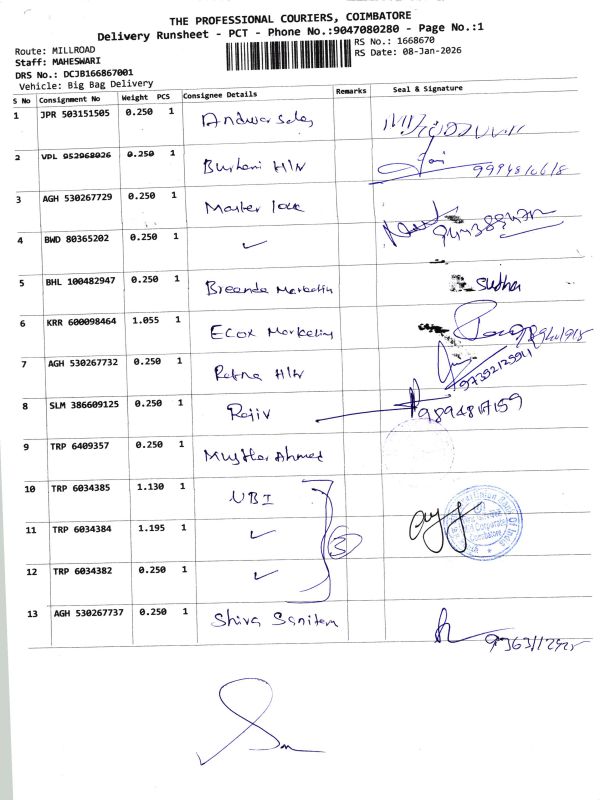 THE PROFESSIONAL COURIERS, COIMBATORE
Delivery Runsheet - PCT - Phone No.:9047080280 - Page No.:1
Route: MILLROAD
RS No.: 1668670
Staff: MAHESWARI
RS Date: 08-Jan-2026
DRS No.: DCJB166867001
Vehicle: Big Bag Delivery
S No Consignment No Weight PCS Consignee Details Remarks Seal & Signature
1 JPR 503151505 0.250 1
2 VPL 952968026 0.250 1 Burhani H/W
3 AGH 530267729 0.250 1 Master lock
4 BWD 80365202 0.250 1 ✓
5 BHL 100482947 0.250 1 Sudha
6 KRR 600098464 1.055 1 Ecox Marketing
7 AGH 530267732 0.250 1 Ratna H/W 9739212591
8 SLM 386609125 0.250 1 Rajiv 9894817159
9 TRP 6409357 0.250 1 Ahmed
10 TRP 6034385 1.130 1 UBI
11 TRP 6034384 1.195 1 ✓ 3
12 TRP 6034382 0.250 1 ✓
13 AGH 530267737 0.250 1 Shiva